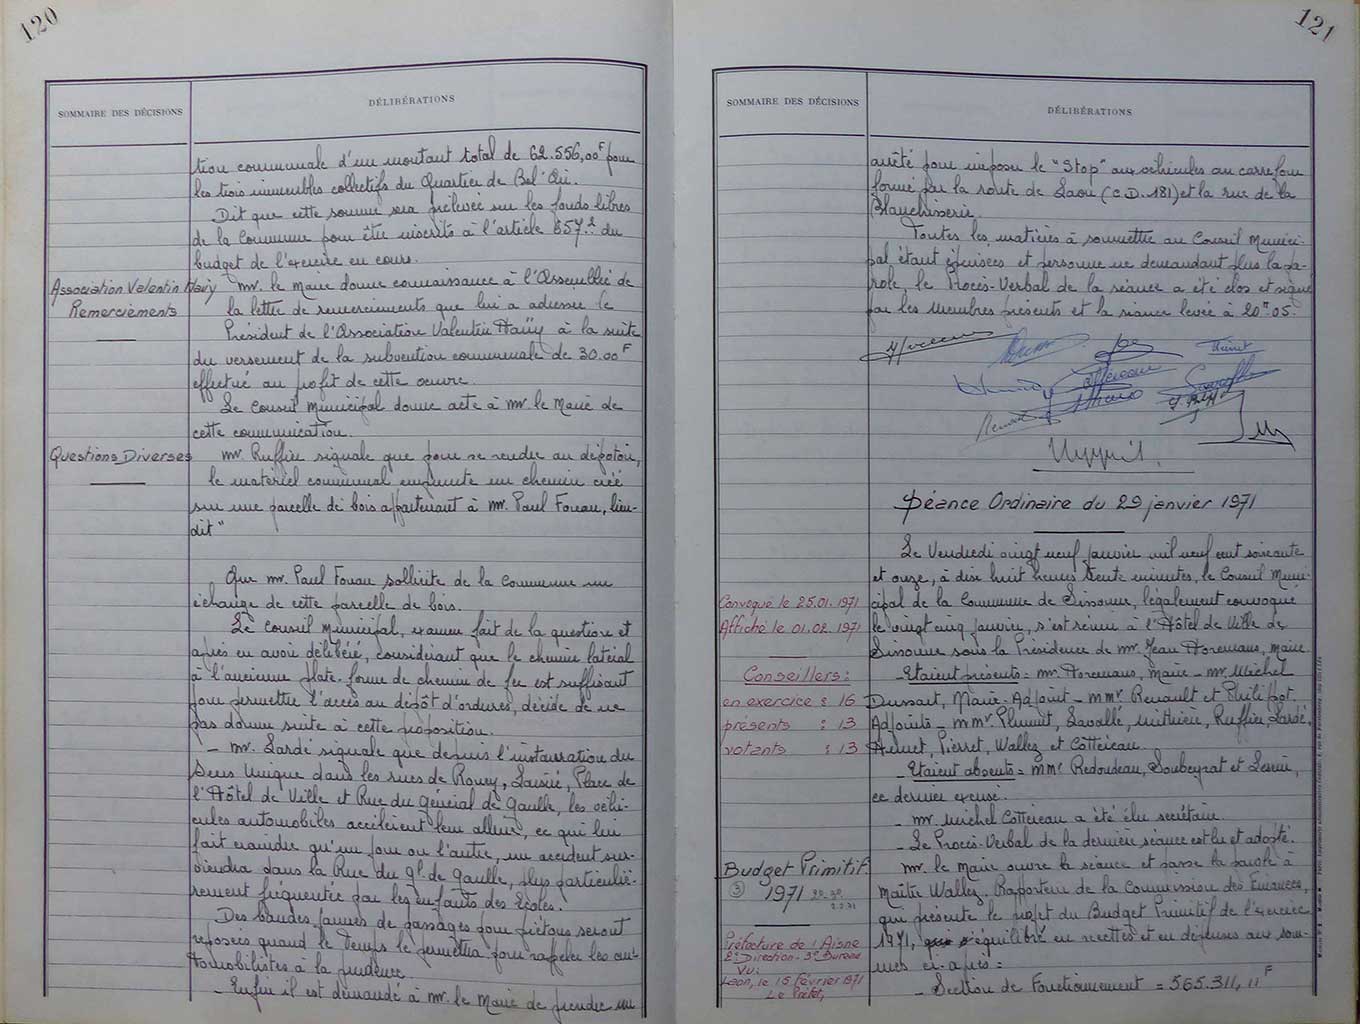 120
SOMMAIRE DES DÉCISIONS
DÉLIBÉRATIONS
tion communale d'un montant total de 62.556,00F pour
les trois immeubles collectifs du Quartier de Bel'Air.
Dit que cette somme sera prélevée sur les fonds libres
de la Commune pour être inscrite à l'article 657.2 du
budget de l'exercice en cours.
Association Valentin Haüy
Remerciements
Mr. le Maire donne connaissance à l'Assemblée de
la lettre de remerciements que lui a adressée le
Président de l'Association Valentin Haüy à la suite
du versement de la subvention communale de 30.00F
effectué au profit de cette oeuvre.
Le Conseil Municipal donne acte à Mr. le Maire de
cette communication.
Questions Diverses
Mr. Ruffin signale que pour se rendre au dépotoir,
le matériel communal emprunte un chemin créé
sur une parcelle de bois appartenant à Mr. Paul Fouan, lieu-
dit "
Que Mr. Paul Fouan sollicite de la Commune un
échange de cette parcelle de bois.
Le Conseil Municipal, examen fait de la question et
après en avoir délibéré, considérant que le chemin latéral
à l'ancienne plate-forme de chemin de fer est suffisant
pour permettre l'accès au dépôt d'ordures, décide de ne
pas donner suite à cette proposition.
- Mr. Lardé signale que depuis l'instauration du
Sens Unique dans les rues de Roucy, Place de
l'Hôtel de Ville et Rue du Général de Gaulle, les véhi-
cules automobiles accélèrent leur allure, ce qui lui
fait craindre qu'un jour ou l'autre, un accident sur-
viendra dans la Rue du Gl. de Gaulle, plus particuliè-
rement fréquentée par les enfants des Ecoles.
Des bandes jaunes de passages pour piétons seront
reposées quand le temps le permettra pour rappeler les au-
tomobilistes à la prudence.
- Enfin il est demandé à Mr. le Maire de prendre un
121
SOMMAIRE DES DÉCISIONS
DÉLIBÉRATIONS
arrêté pour imposer le "Stop" aux véhicules au carrefour
formé par la route de Laon (C.D.181) et la rue de la
Blanchisserie.
Toutes les matières à soumettre au Conseil Munici-
pal étant épuisées et personne ne demandant plus la pa-
role, le Procès-Verbal de la séance a été clos et signé
par les Membres présents et la séance levée à 20H05.
Séance Ordinaire du 29 janvier 1971
Le Vendredi vingt neuf janvier mil neuf cent soixante
et onze, à dix huit heures trente minutes, le Conseil Muni-
Convoqué le 25.01.1971
cipal de la Commune de Sissonne, légalement convoqué
Affiché le 01.02.1971
le vingt cinq janvier, s'est réuni à l'Hôtel de Ville de
Sissonne sous la Présidence de Mr. Jean Horemans, Maire.
Conseillers:
- Etaient présents = Mr. Horemans, Maire - Mr. Michel
en exercice : 16
Dussart, Maire-Adjoint - MMr. Renault et Philippot,
présents : 13
Adjoints - MMr. Plumet, Lavallé, Ruffin, Lardé,
votants : 13
Pierret, Wallez et Cottereau.
- Etaient absents = MMr. Redoudeau, Soubeyrat et
ce dernier excusé.
- Mr. Michel Cottereau a été élu secrétaire.
- Le Procès-Verbal de la dernière séance est lu et adopté.
Budget Primitif
3
1971
Mr. le Maire ouvre la séance et passe la parole à
Maître Wallez, Rapporteur de la Commission des Finances,
qui présente le projet du Budget Primitif de l'exercice
Préfecture de l'Aisne
2e Direction - 3e Bureau
Vu:
Laon, le 15 février 1971
Le Préfet,
1971, équilibré en recettes et en dépenses aux som-
mes ci-après =
- Section de Fonctionnement = 565.311,11F